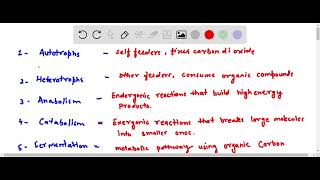 1 - Autotrophs - self feeders, fixes carbon di oxide
2 - Heterotrophs - other feeders, consume organic compounds
3 - Anabolism - Endergonic reactions that build high energy
products.
4 - Catabolism = Exergonic reactions that breaks large molecules
into smaller ones.
5 - Fermentation = metabolic pathway using organic Carbon